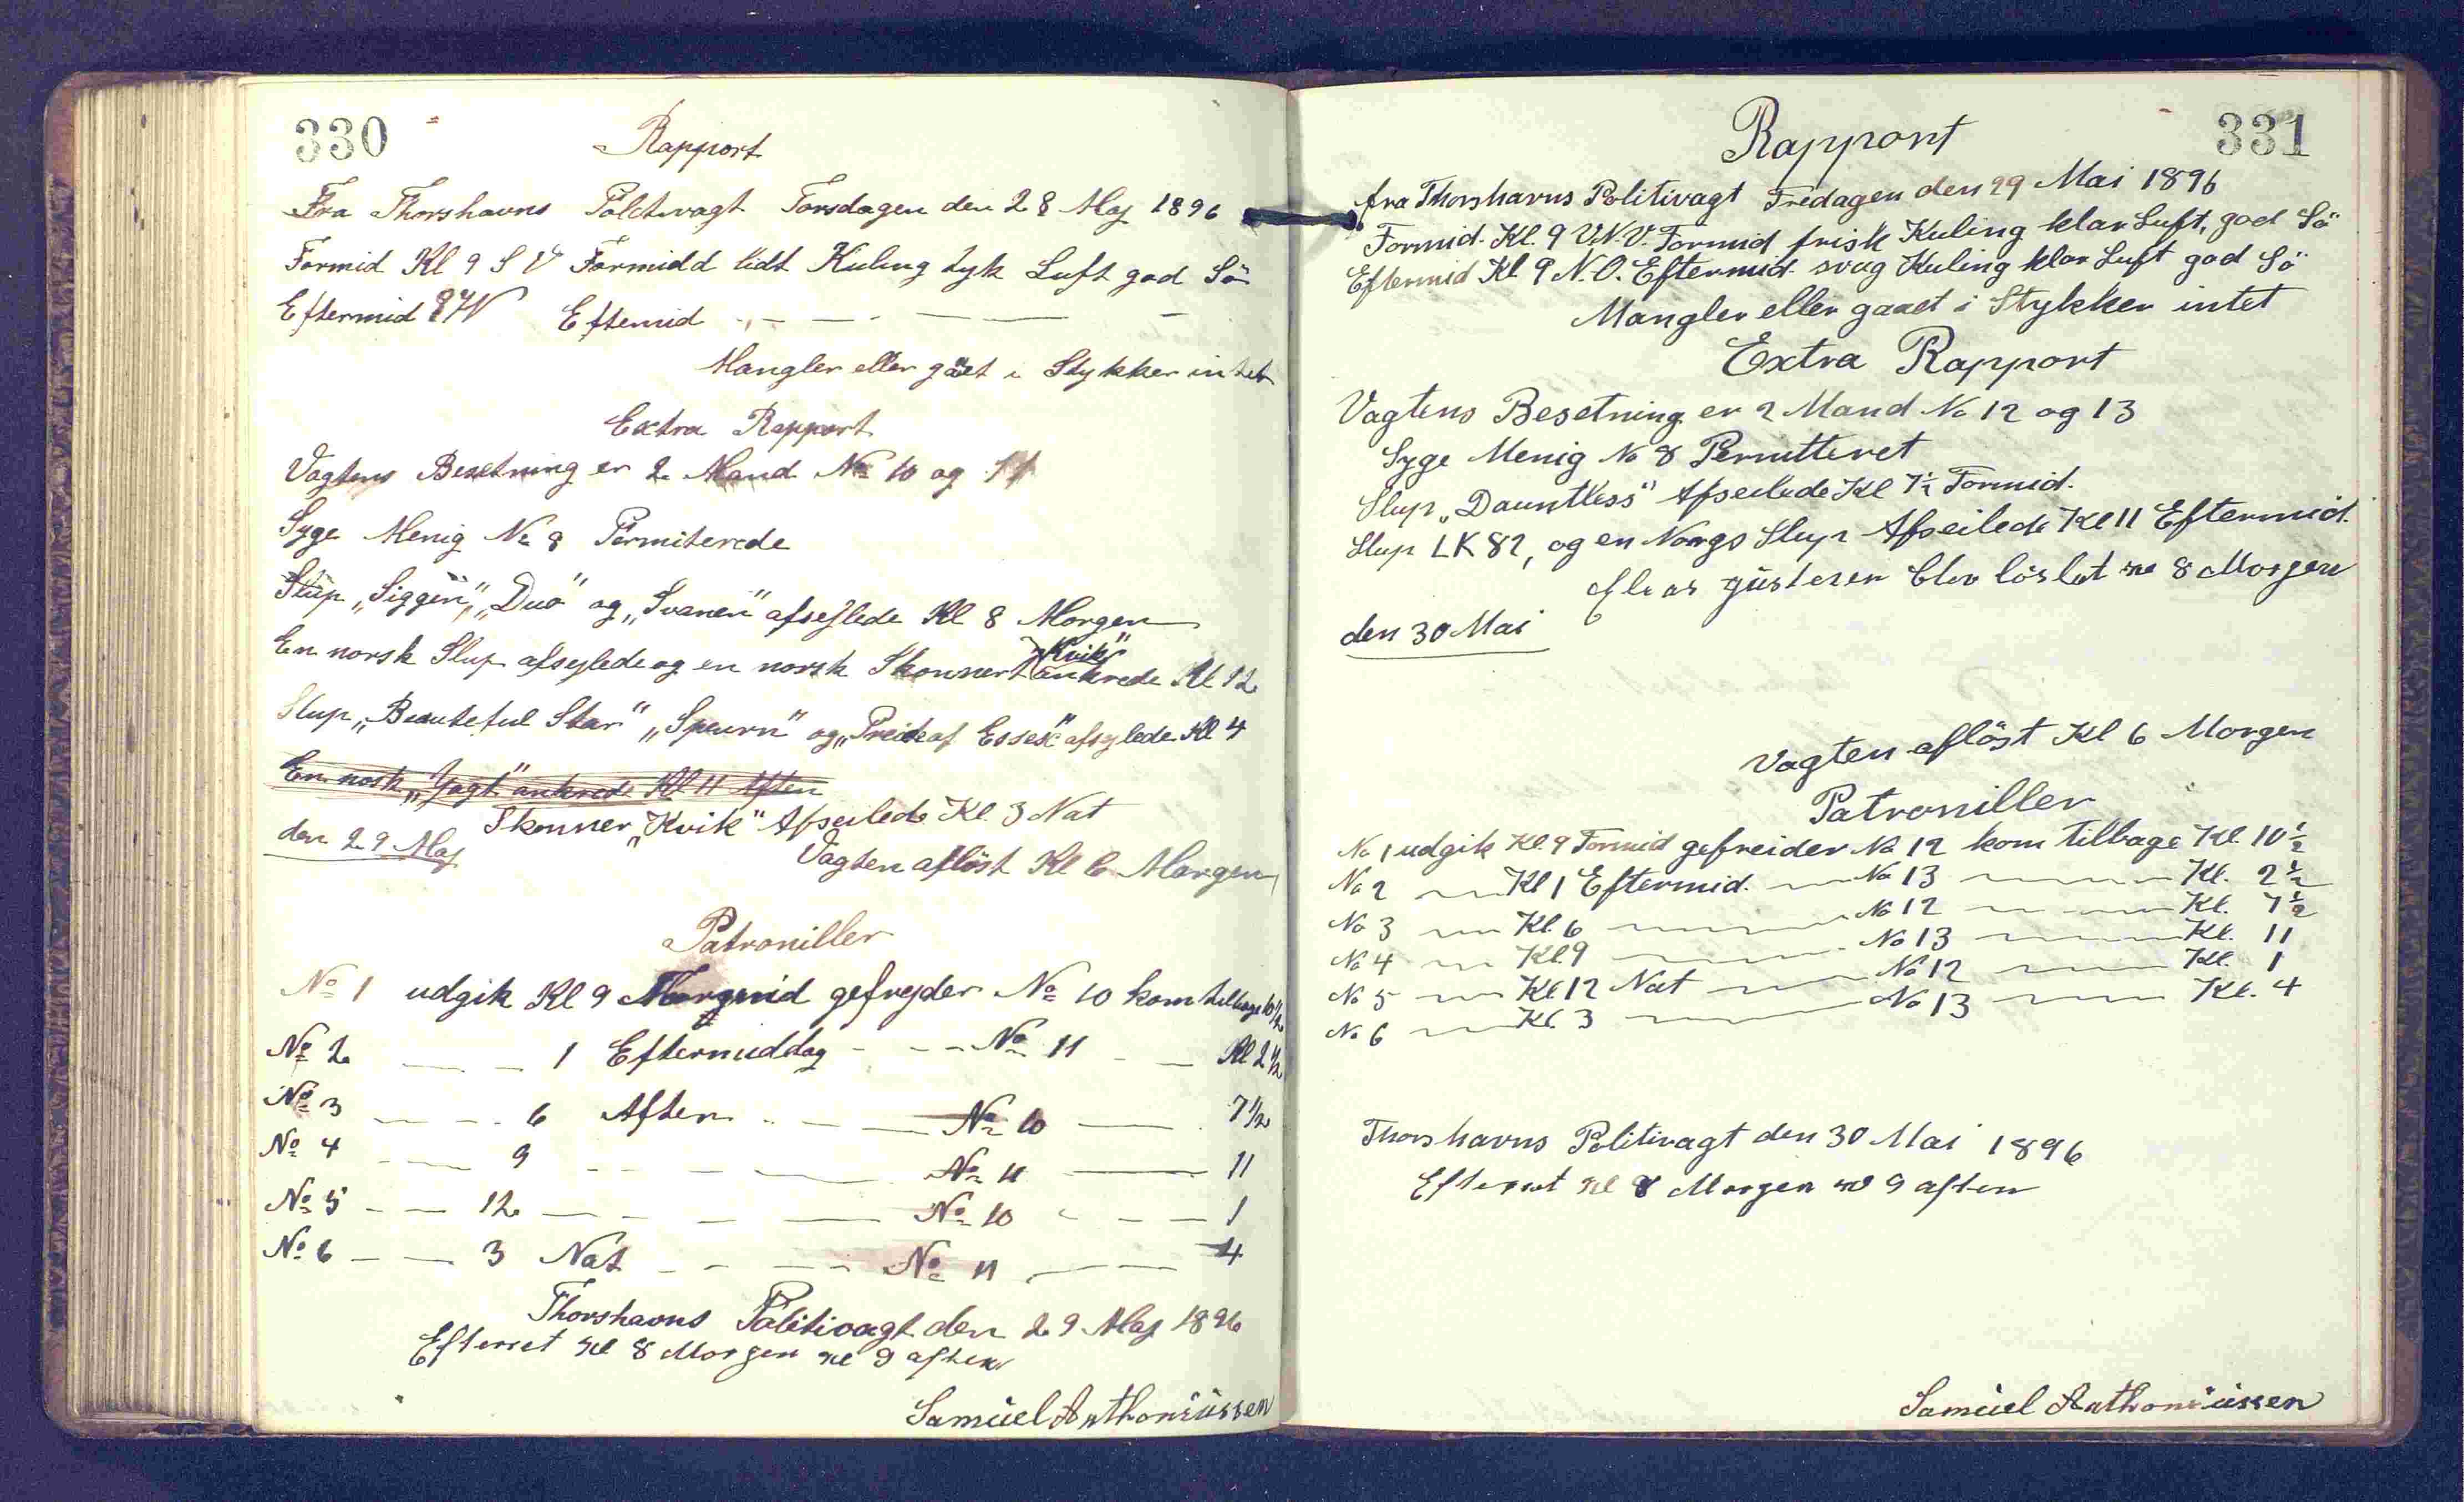 330
Rapport
Fra Thorshavns Politivagt Torsdagen den 28 Maj 1896
Formid Kl 9 S V Formidd lidt Kuling tyk Luft god Sö
Eftermid 9 Eftemid - - - - - -
Mangler eller gået i Stykker intet
Extra Rapport
Vagtens Besetning er 2 Mand No 10 og 11
Syge Menig No 8 Permiterede
Slup „Siggen", „Duo" og „Svanen" afsejlede Kl 8 Morgen
En norsk Slup afsejlede og en norsk Skonnert „Kvik" ankrede Kl 12
Slup „Beauteful Star" „Spurn" og „Preide af Essex" afsejlede Kl 4
En norsk „Jagt" ankrede Kl 11 Aften
Skonner „Kvik" Afseilede Kl. 3 Nat
den 29 Maj
Vagten aflöst Kl 6 Morgen
Patroniller
No 1 udgik Kl 9 gefrejder No 10 kom tilbage 10 1/2
No 2 — — 1 Eftermiddag - - - No 11 - — Kl 2 1/2
No 3 — - - 6 Aften - — — No 10 — 7 1/2
No 4 — — 9 - - - — No 11 — 11
No 5 - — 12 — - - — No 10 - - — 1
No 6 — — 3 Nat - - — No 11 — — 4
Thorshavns Politivagt den 29 Maj 1896
Efterset Kl 8 Morgen Kl 9 aften
Samuel Anthoniussen
331
Rapport
fra Thorshavns Politivagt Fredagen den 29 Mai 1896
Formid. Kl. 9 V.N.V. Formid frisk Kuling klar Luft, god Sö
Eftermid Kl 9 N.O. Eftermid. svag Kuling klar Luft god Sö
Mangler eller gaaet i Stykker intet
Extra Rapport
Vagtens Besetning er 2 Mand No 12 og 13
Syge Menig No 8 Permitteret
Slup „Dauntless" Afseilede Kl 7½ Formid.
Slup LK 82, og en Norgs Slup Afseilede Kl 11 Eftermid.
blev löslat Kl 8 Morgen
den 30 Mai
Vagten aflöst Kl 6 Morgen
Patroniller
No 1 udgik Kl. 9 Formid gefreider No 12 kom tilbage Kl. 10½
No 2 — Kl 1 Eftermid. — No 13 — Kl. 2½
No 3 — Kl. 6 — No 12 — Kl. 7½
No 4 — Kl. 9 — No 13 — Kl. 11
No 5 — Kl 12 Nat — No 12 — Kl. 1
No 6 — Kl. 3 — No 13 — Kl. 4
Thorshavns Politivagt den 30 Mai 1896
Efterset Kl 8 Morgen Kl 9 aften
Samuel Anthoniussen